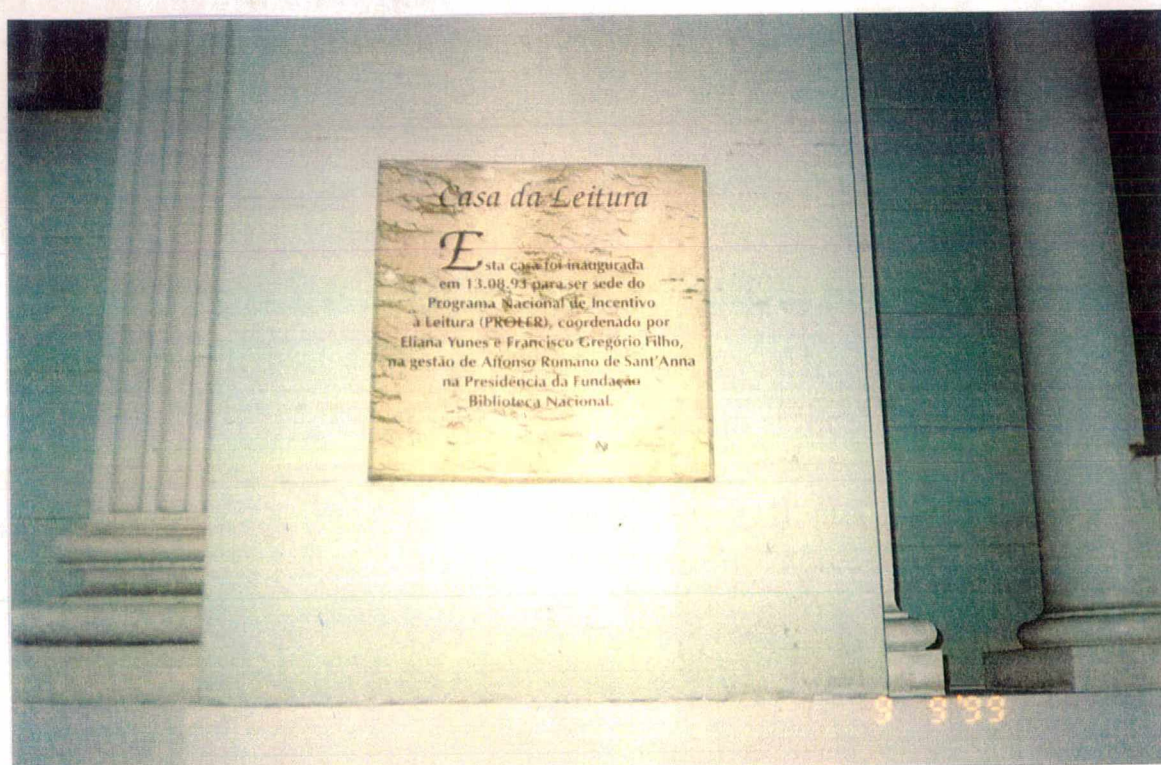 Casa da Leitura
Esta casa foi inaugurada
em 13.08.93 para ser sede do
Programa Nacional de Incentivo
à Leitura (PROLER), coordenado por
Eliana Yunes e Francisco Gregório Filho,
na gestão de Affonso Romano de Sant'Anna
na Presidência da Fundação
Biblioteca Nacional.
9 9 '99